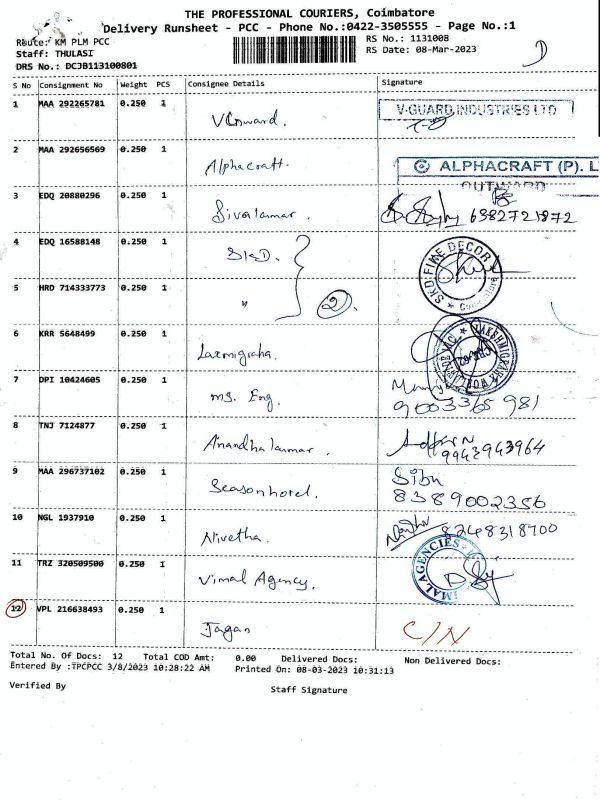 THE PROFESSIONAL COURIERS, Coimbatore
Delivery Runsheet - PCC - Phone No.:0422-3505555 - Page No.:1
Route: KM PLM PCC
RS No.: 1131008
Staff: THULASI
RS Date: 08-Mar-2023
DRS No.: DCJB113100801
S No Consignment No Weight PCS Consignee Details Signature
1 MAA 292265781 0.250 1 V-GUARD INDUSTRIES LTD
2 MAA 292656569 0.250 1 Alphacraft. ALPHACRAFT (P). L
OUTWARD
3 EDQ 20880296 0.250 1 Sivakumar. 6382721872
4 EDQ 16588148 0.250 1 SKD. SKD FINE DECOR Coimbatore
5 HRD 714333773 0.250 1 " 2
6 KRR 5648499 0.250 1 Laxmigraha.
7 DPI 10424605 0.250 1 ms. Eng. 9003365 981
8 TNJ 7124877 0.250 1 Anandhakumar. 9942943964
9 MAA 296737102 0.250 1 Seasonhotel. Sibu
8389002356
10 NGL 1937910 0.250 1 Nivetha. 8248318700
11 TRZ 320509500 0.250 1 Vimal Agency. VIMAL AGENCIES
12 VPL 216638493 0.250 1 Jagan C/N
Total No. Of Docs: 12 Total COD Amt: 0.00 Delivered Docs: Non Delivered Docs:
Entered By :TPCPCC 3/8/2023 10:28:22 AM Printed On: 08-03-2023 10:31:13
Verified By
Staff Signature